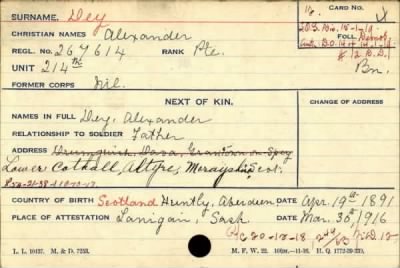 SURNAME. Dey
CARD NO.
CHRISTIAN NAMES Alexander
REGL. NO. 267614 RANK Pte.
FOLL.
UNIT 214th
Bn.
FORMER CORPS Nil.
NEXT OF KIN.
CHANGE OF ADDRESS
NAMES IN FULL Dey, Alexander
RELATIONSHIP TO SOLDIER Father
ADDRESS Drumguish, Dava, Grantown on Spey
Lower Cothall, Altyre, Morayshire Scot.
COUNTRY OF BIRTH Scotland Huntly, Aberdeen DATE Apr. 19th 1891
PLACE OF ATTESTATION Lanigan, Sask DATE Mar. 30th, 1916
L. L. 10437. M. & D. 7253. M. F. W. 22.